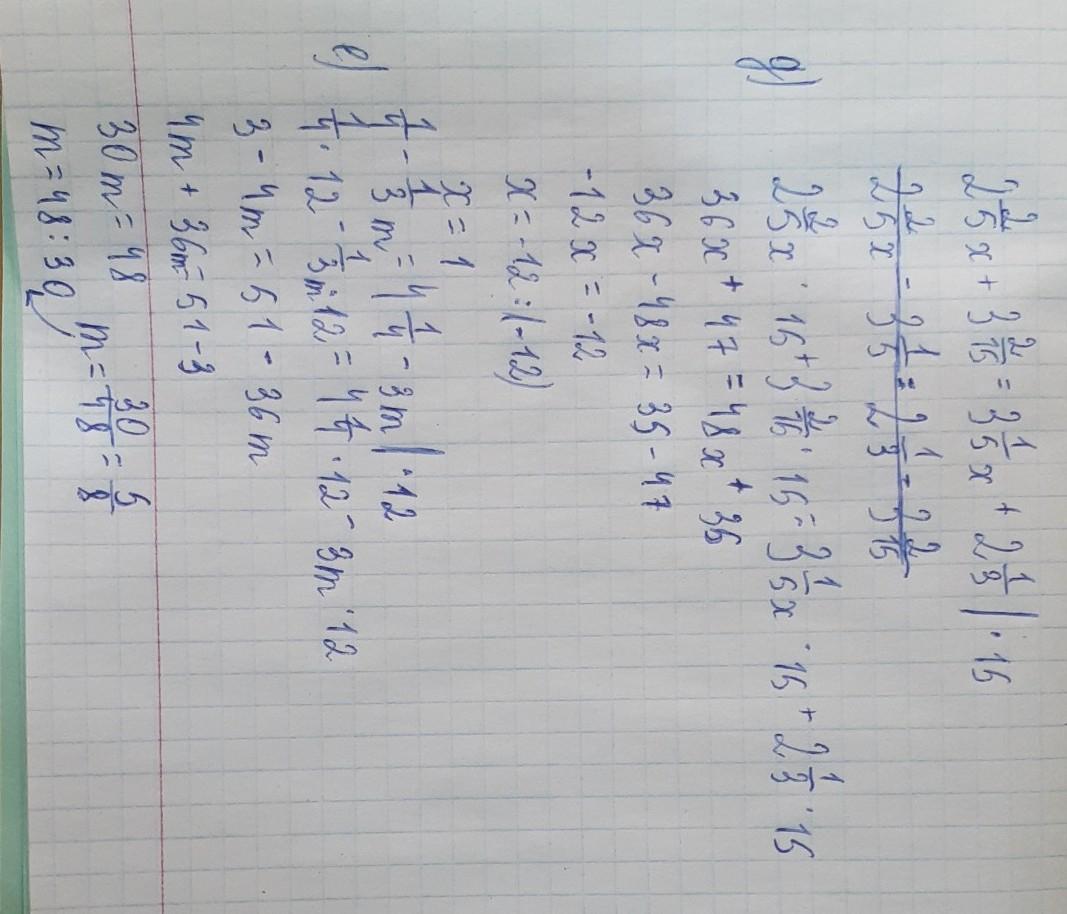 g)
2 2/5 x + 3 2/15 = 3 1/5 x + 2 1/3 | · 15
2 2/5 x - 3 1/5 = 2 1/3 - 3 2/15
2 2/5 x · 15 + 3 2/15 · 15 = 3 1/5 x · 15 + 2 1/3 · 15
36x + 47 = 48x + 35
36x - 48x = 35 - 47
-12x = -12
x = -12 : (-12)
x = 1
e)
1/4 - 1/3 m = 4 1/4 - 3m | · 12
1/4 · 12 - 1/3 m · 12 = 4 1/4 · 12 - 3m · 12
3 - 4m = 51 - 36m
4m + 36m = 51 - 3
30m = 48
m = 48 : 30
m = 30/48 = 5/8